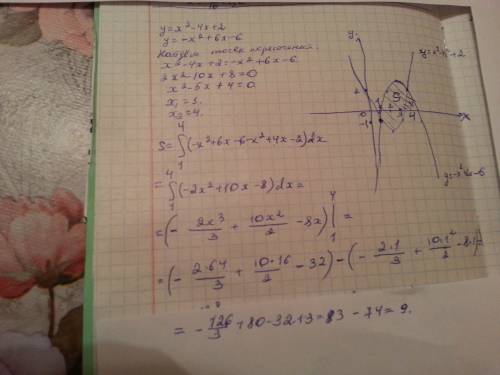 y=x²-4x+2
y=-x²+6x-6
Найдем точки пересечения:
x²-4x+2=-x²+6x-6
2x²-10x+8=0
x²-5x+4=0
x₁=1.
x₂=4.
S=∫₁⁴(-x²+6x-6-x²+4x-2)dx
=∫₁⁴(-2x²+10x-8)dx=
=(-2x³/3+10x²/2-8x)|₁⁴=
=(-2·64/3+10·16/2-32)-(-2·1/3+10·1²/2-8·1)=
=-126/3+80-32+3=83-74=9.
y
y=x²-4x+2
2
0
1
3
4
-1
x
S
y=-x²+6x-6